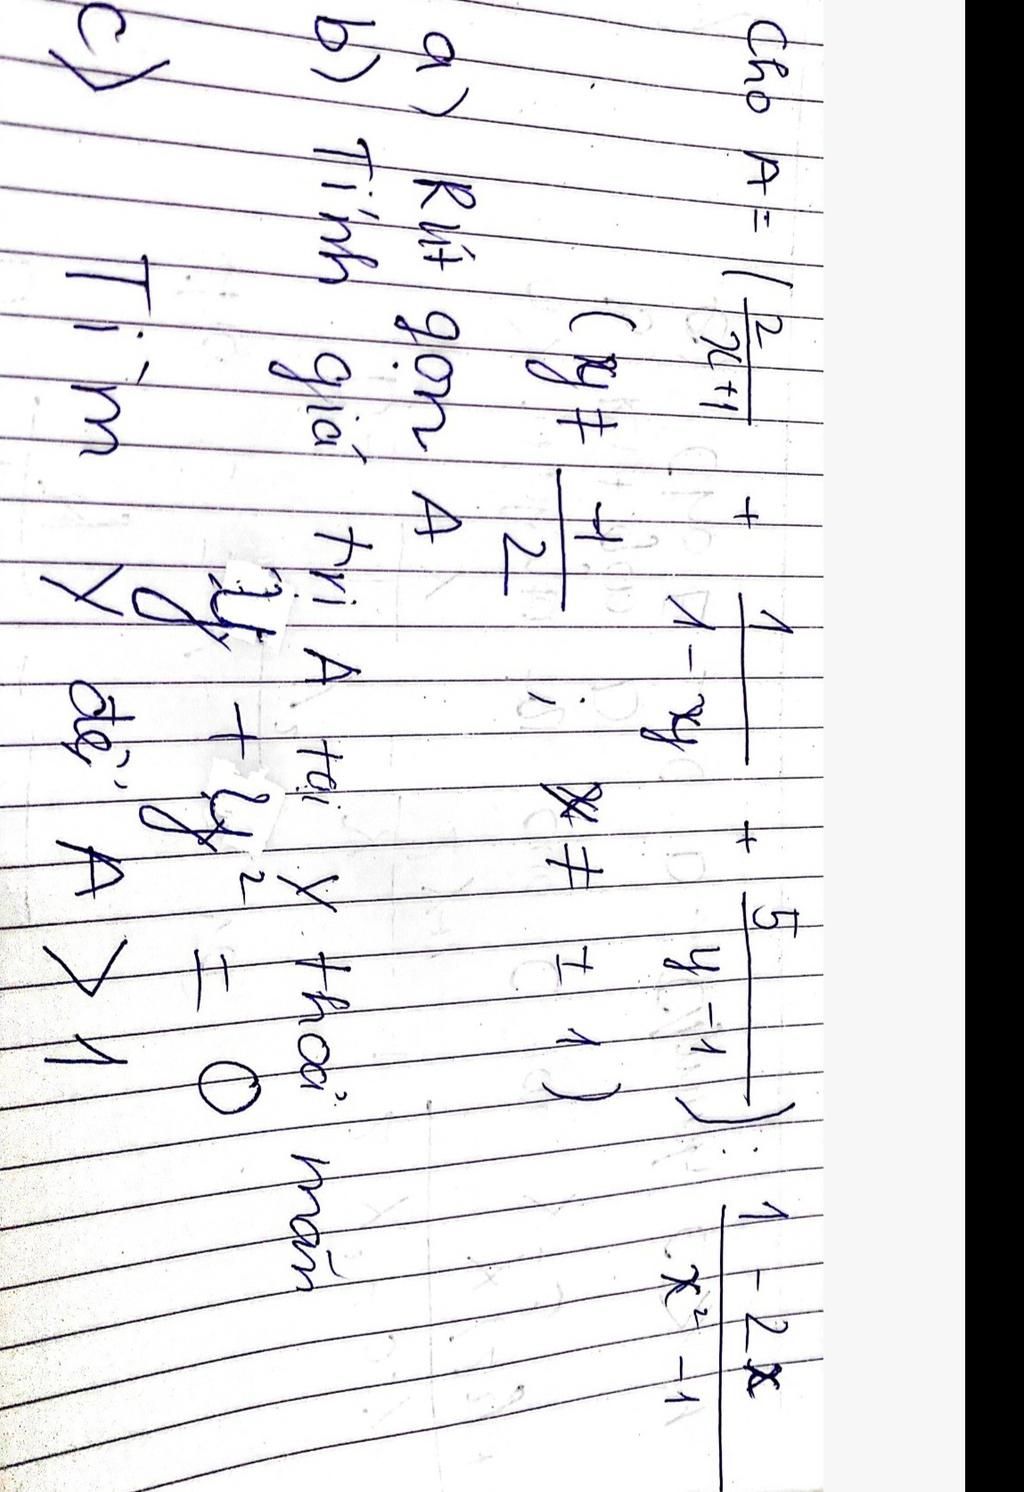 Cho A = ( 2/x+1 + 1/1-xy + 5/y-1 ) : 1-2x/x²-1
(xy ≠ 1/2 ; x ≠ ± 1)
a) Rút gọn A
b) Tính giá trị A tại x thoả mãn
y + y² = 0
c) Tìm x để A > 1